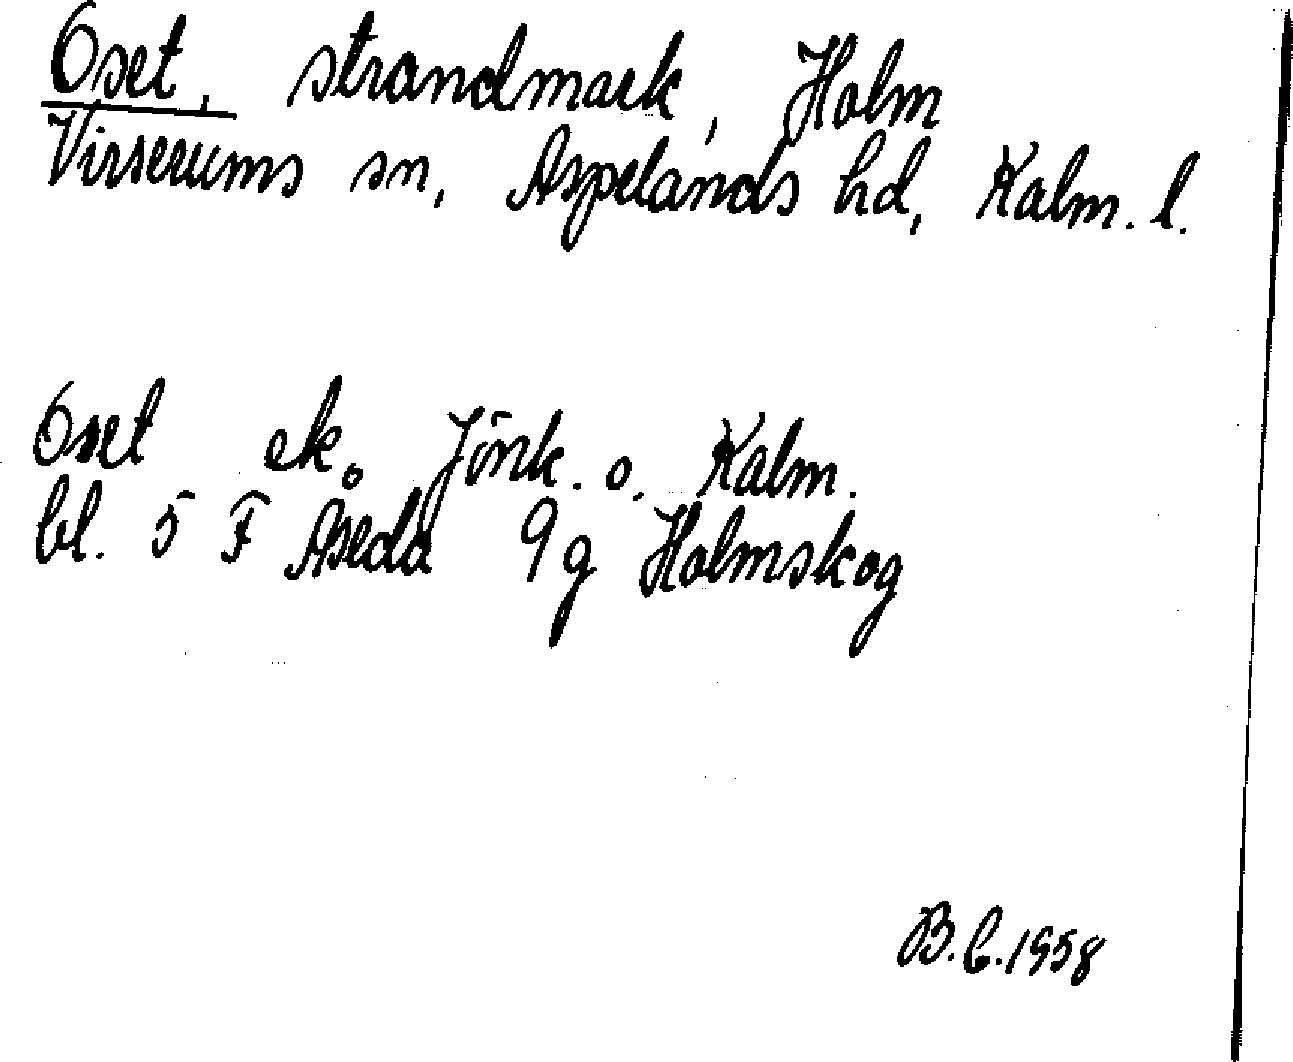 Oset, strandmark, Holm
Virserums sn, Aspelands hd, Kalm. l.
Oset ek. Jönk. o. Kalm.
bl. 5 F Åseda 9 g Holmskog
B.C. 1958